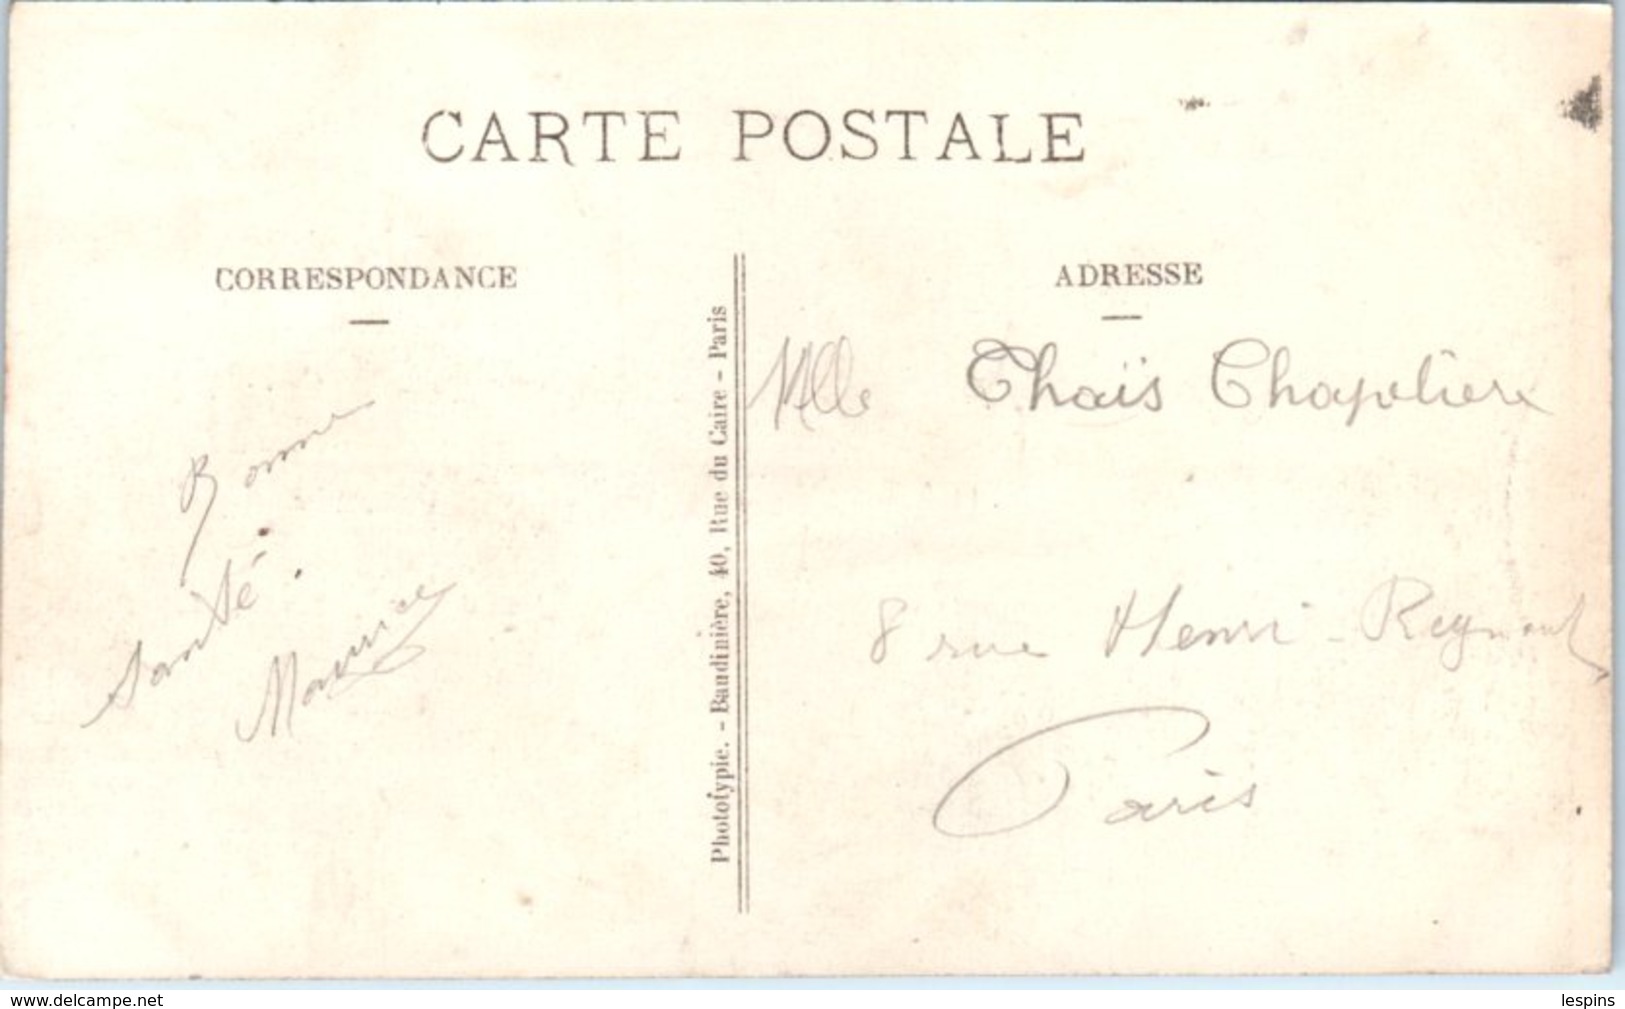 CARTE POSTALE
CORRESPONDANCE
Bonne
santé.
Maurice
Phototypie. - Baudinière, 40, Rue du Caire - Paris
ADRESSE
Mlle Thaïs Chapelière
8 rue Henri-Regnault
Paris
www.delcampe.net
lespins